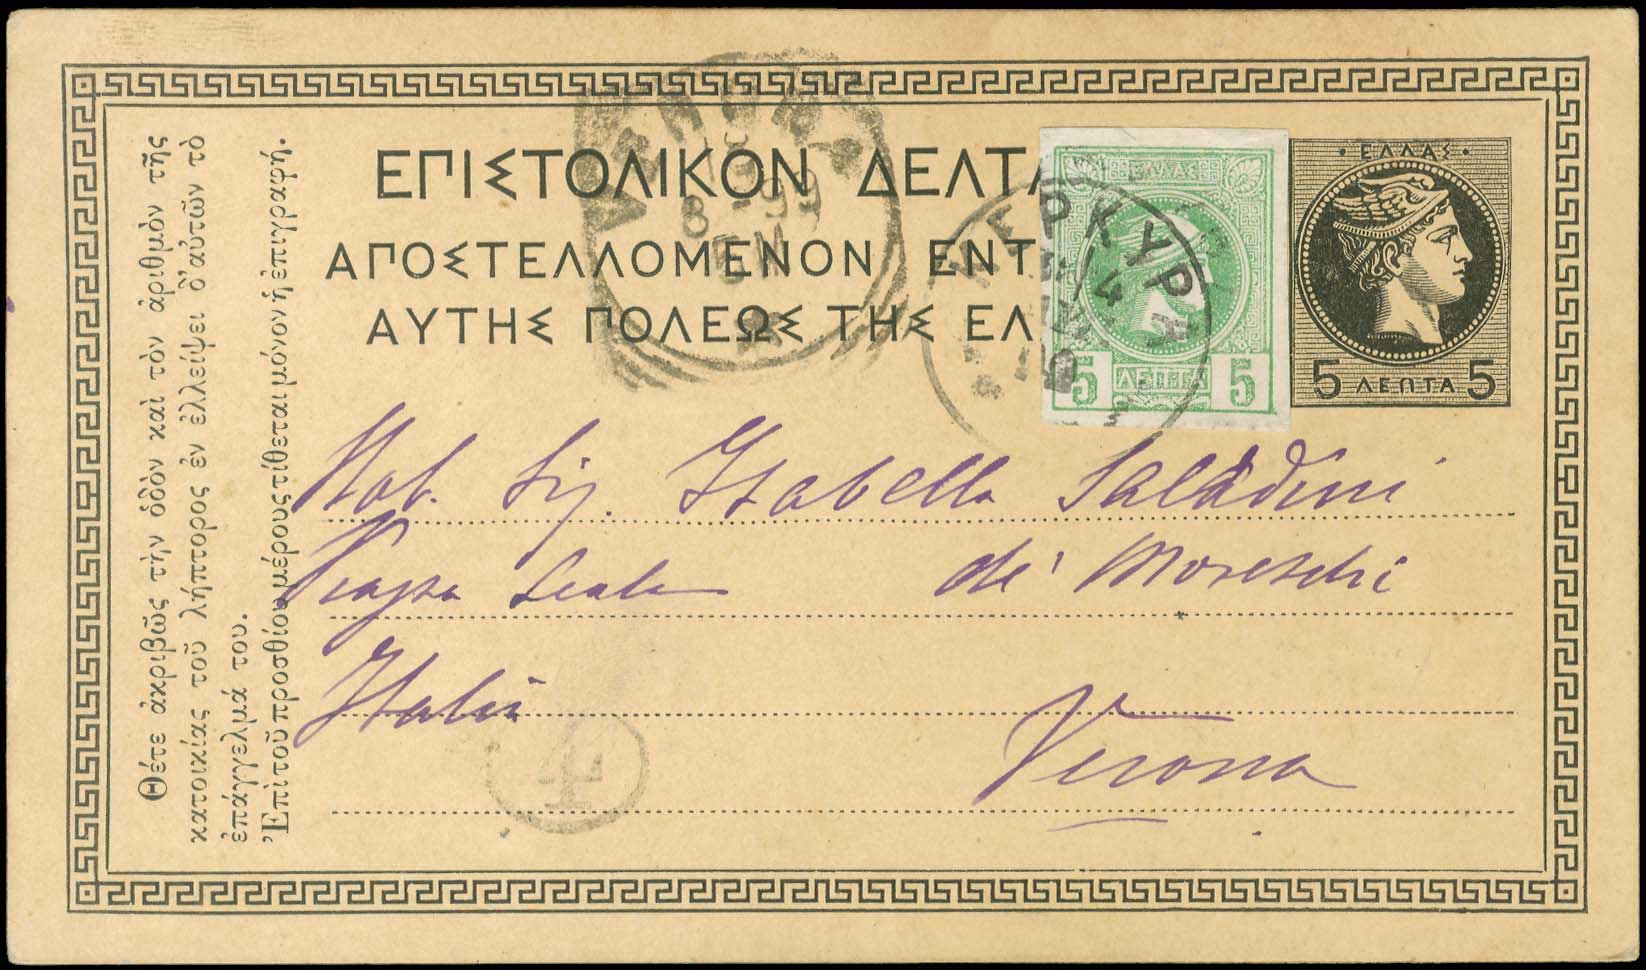 ΕΠΙΣΤΟΛΙΚΟΝ ΔΕΛΤΑ
ΑΠΟΣΤΕΛΛΟΜΕΝΟΝ ΕΝΤ
ΑΥΤΗΣ ΠΟΛΕΩΣ ΤΗΣ ΕΛ
Θέτε ἀκριβῶς τὴν ὁδὸν καὶ τὸν ἀριθμὸν τῆς
κατοικίας τοῦ λήπτορος ἐν ἐλλείψει δ' αὐτῶν τὸ
ἐπάγγελμά του.
Ἐπὶ τοῦ προσθίου μέρους τίθεται μόνον ἡ ἐπιγραφή.
VERONA
8 - 99
ΚΕΡΚΥΡΑ
ΕΛΛΑΣ
5 ΛΕΠΤΑ 5
ΕΛΛΑΣ
5 ΛΕΠΤΑ 5
Nob. Sig. Isabella Saladini
Piazza Scala de' Moreschi
Italia
Verona
4